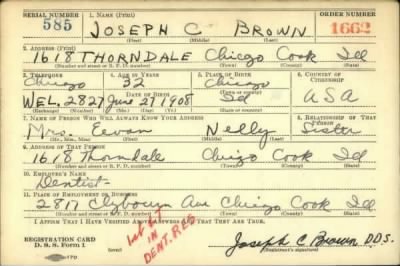 SERIAL NUMBER 1. NAME (Print) ORDER NUMBER
585 JOSEPH C BROWN 1662
(First) (Middle) (Last)
2. ADDRESS (Print)
1618 THORNDALE Chicago Cook Ill
(Number and street or R. F. D. number) (Town) (County) (State)
3. TELEPHONE 4. AGE IN YEARS 5. PLACE OF BIRTH 6. COUNTRY OF CITIZENSHIP
Chicago 32 Chicago
DATE OF BIRTH (Town or county)
WEL. 2827 June 27 1908 Ill USA
(Exchange) (Number) (Mo.) (Day) (Yr.) (State or country)
7. NAME OF PERSON WHO WILL ALWAYS KNOW YOUR ADDRESS 8. RELATIONSHIP OF THAT PERSON
Mrs. Nelly Sister
(Mr., Mrs., Miss) (First) (Middle) (Last)
9. ADDRESS OF THAT PERSON
1618 Thorndale Chicago Cook Ill
(Number and street or R. F. D. number) (Town) (County) (State)
10. EMPLOYER'S NAME
Dentist
11. PLACE OF EMPLOYMENT OR BUSINESS
Clybourn Ave Chicago Cook Ill
(Number and street or R. F. D. number) (Town) (County) (State)
I AFFIRM THAT I HAVE VERIFIED ABOVE ANSWERS AND THAT THEY ARE TRUE.
IN
DENT. RES
REGISTRATION CARD
D. S. S. Form 1
Joseph C Brown D.D.S.
(Registrant's signature)